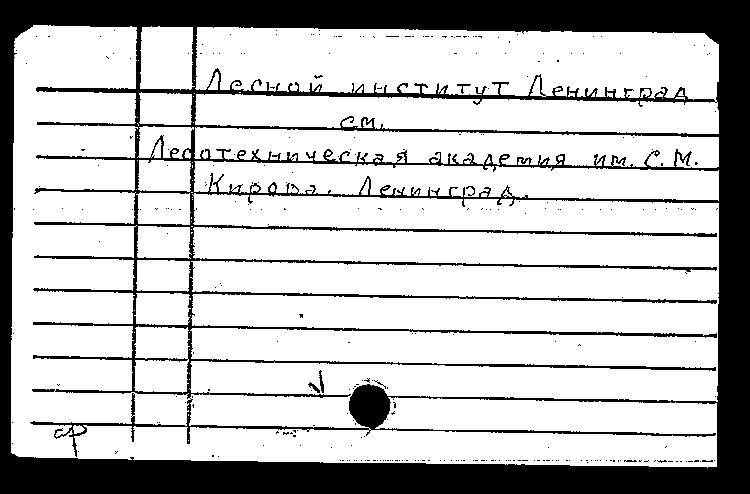 Лесной институт Ленинград
см.
Лесотехническая академия им. С. М.
Кирова. Ленинград.